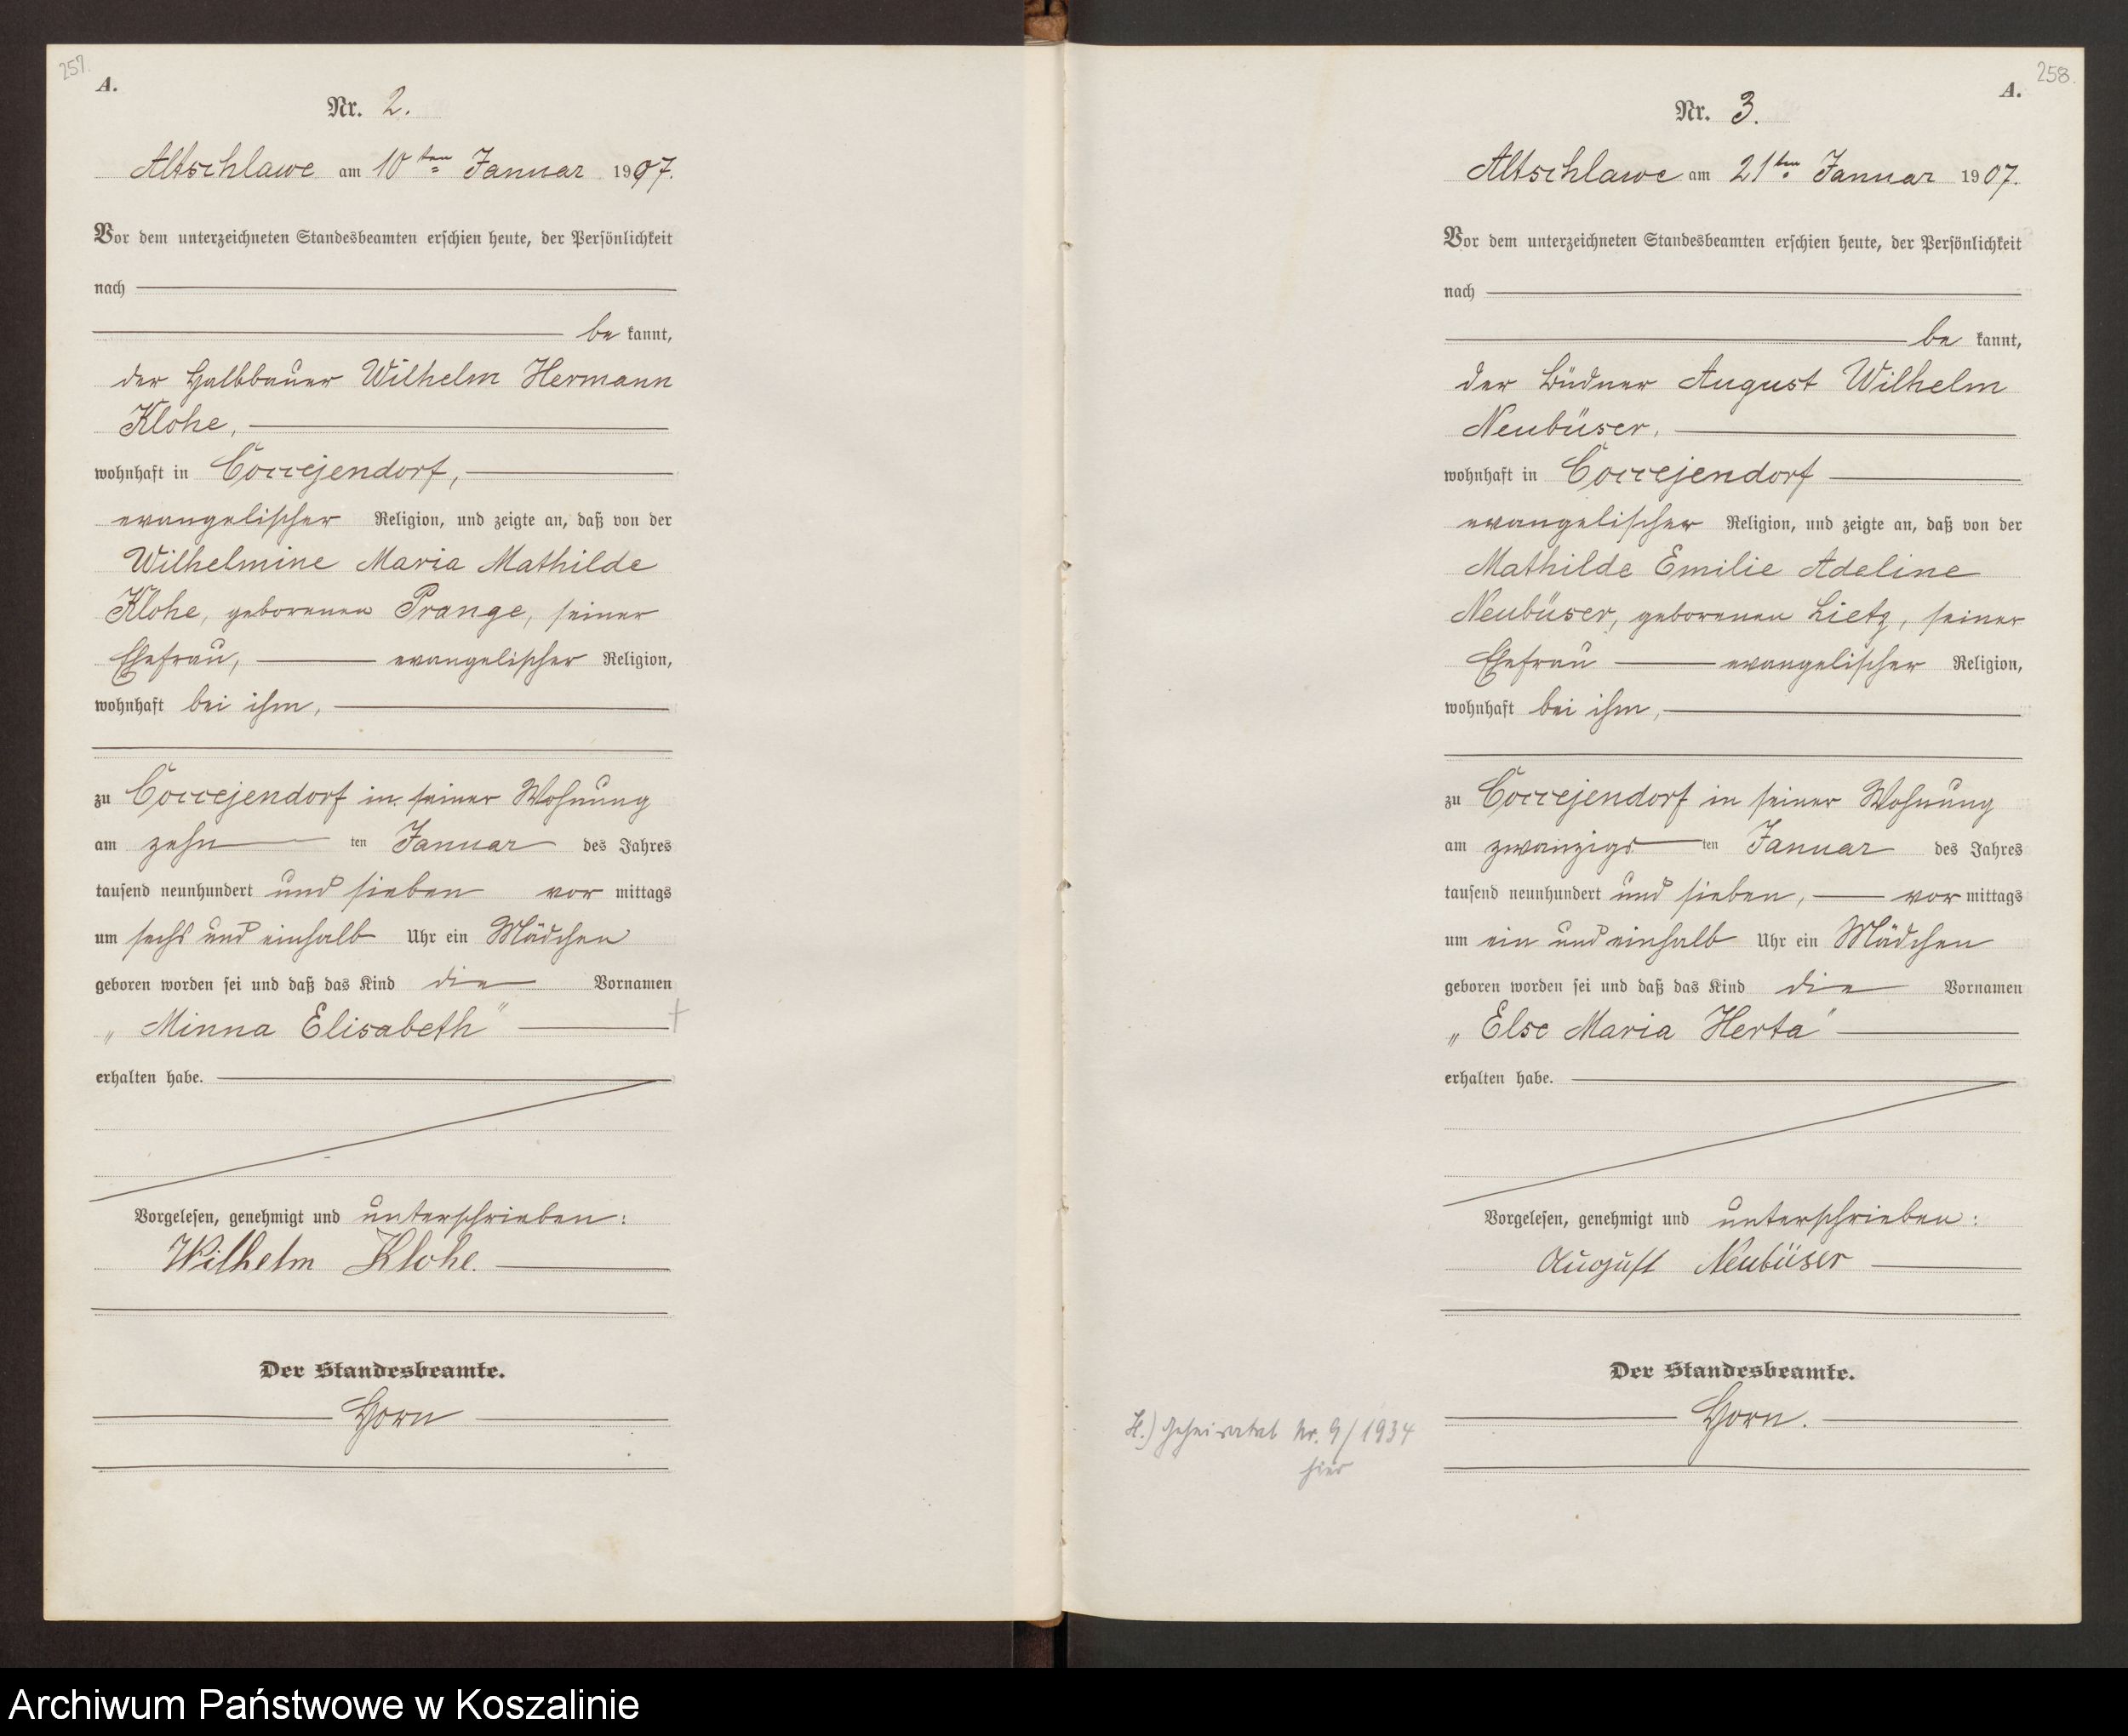 257.
A.
Nr. 2.
Altschlawe am 10ten Januar 1907.
Vor dem unterzeichneten Standesbeamten erschien heute, der Persönlichkeit
nach
be kannt,
der Halbbauer Wilhelm Hermann
Klohe,
wohnhaft in Coccejendorf,
evangelischer Religion, und zeigte an, daß von der
Wilhelmine Maria Mathilde
Klohe, geborenen Prange, seiner
Ehefrau, evangelischer Religion,
wohnhaft bei ihm,
zu Coccejendorf in seiner Wohnung
am zehn ten Januar des Jahres
tausend neunhundert und sieben vor mittags
um sechs und einhalb Uhr ein Mädchen
geboren worden sei und daß das Kind die Vornamen
„Minna Elisabeth“ †
erhalten habe.
Vorgelesen, genehmigt und unterschrieben:
Wilhelm Klohe.
Der Standesbeamte.
Horn
258.
A.
Nr. 3.
Altschlawe am 21ten Januar 1907.
Vor dem unterzeichneten Standesbeamten erschien heute, der Persönlichkeit
nach
be kannt,
der Büdner August Wilhelm
Neubüser,
wohnhaft in Coccejendorf
evangelischer Religion, und zeigte an, daß von der
Mathilde Emilie Adeline
Neubüser, geborenen Lietz, seiner
Ehefrau evangelischer Religion,
wohnhaft bei ihm,
zu Coccejendorf in seiner Wohnung
am zwanzigs ten Januar des Jahres
tausend neunhundert und sieben, vor mittags
um ein und einhalb Uhr ein Mädchen
geboren worden sei und daß das Kind die Vornamen
„Else Maria Herta“
erhalten habe.
Vorgelesen, genehmigt und unterschrieben:
August Neubüser
Der Standesbeamte.
Horn.
H.) Geheiratet Nr. 9/1934
hier
Archiwum Państwowe w Koszalinie